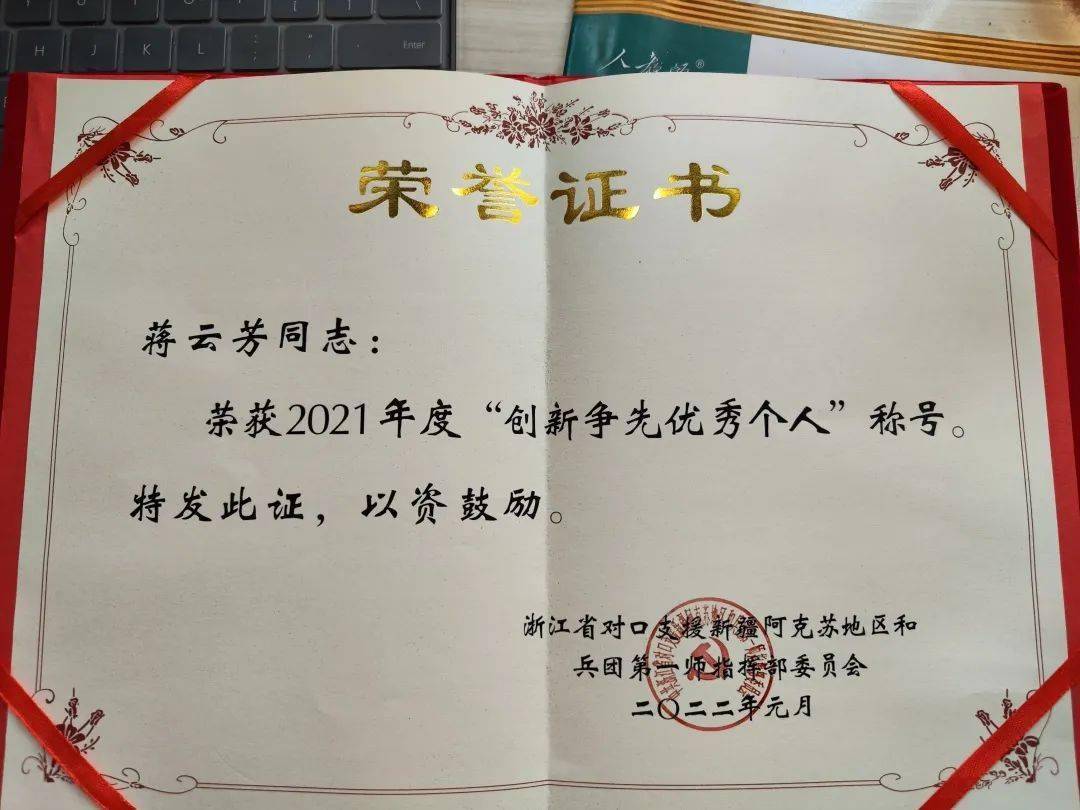 H J K L Enter
人教版®
荣誉证书
蒋云芳同志：
荣获2021年度“创新争先优秀个人”称号。
特发此证，以资鼓励。
浙江省对口支援新疆阿克苏地区和
兵团第一师指挥部委员会
二〇二二年元月